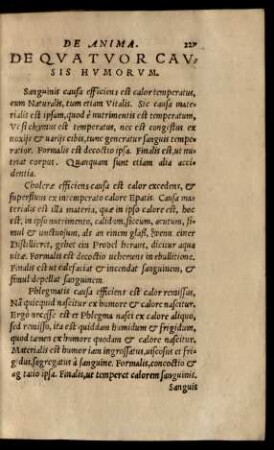 DE ANIMA. 227
DE QVATVOR CAV-
SIS HVMORVM.
Sanguinis causa efficiens est calor temperatus,
cum Naturalis, tum etiam Vitalis. Sic causa mate-
rialis est ipsam, quod è nutrimentis est temperatum,
Vt si chymus est temperatus, nec est congestus ex
noxijs & varijs cibis, tunc generatur sanguis tempe-
ratior. Formalis est decoctio ipsa. Finalis est, ut nu
triat corput. Quanquam sunt etiam alia acci
dentia.
Choleræ efficiens causa est calor excedens, &
superfluus ex intemperato calore Epatis. Causa ma
terialis est illa materia, quæ in ipso calore est, hoc
est, in ipso nutrimento, calidum, siccum, acutum, si-
mul & unctuosum, de an einem glaß, wenn einer
Distilliert, gehet ein Prodel herauß, dicitur aqua
vitæ. Formalis est decoctio uehemens in ebullitione.
Finalis est ut calefaciat & incendat sanguinem, &
simul depellat sanguinem.
Phlegmatis causa efficiens est calor remissus,
Nã quicquid nascitur ex humore & calore nascitur.
Ergo necesse est et Phlegma nasci ex calore aliquo,
sed remisso, ita est quiddam humidum & frigidum,
quod tamen ex humore quodam & calore nascitur.
Materialis est humor iam ingrossatus, uiscosus et fri
gidus, segregatus à sanguine. Formalis, concoctio &
ag tatio ipsa. Finalis, ut temperet calorem sanguinis.
Sanguis